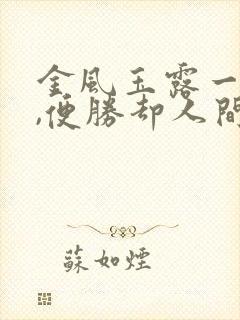 金風玉露一
,便勝却人間
蘇如煙